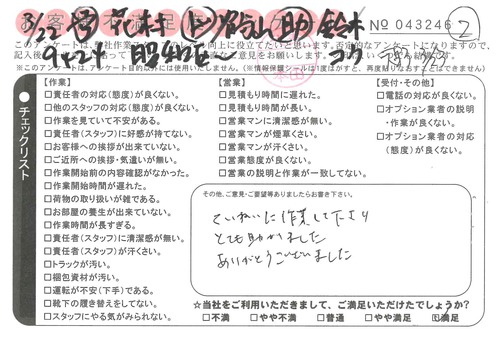 お客様不満足
3/22 営 花村 助 鈴木
9セ24
No 043246 ②
このアンケートは、
のレベル向上に役立てたいと思います。否定的なアンケートになりますので、
記入後
ご意見をお願いします。
※このアンケートは、アンケート目的以外には使用いたしません。(※情報保護シールは1度はがすと、再度貼りなおすことはできません)
チェックリスト
【作業】
□責任者の対応(態度)が良くない。
□他のスタッフの対応(態度)が良くない。
□作業を見ていて不安がある。
□責任者(スタッフ)に好感が持てない。
□お客様への挨拶が出来ていない。
□ご近所への挨拶・気遣いが無い。
□作業開始前の内容確認がなかった。
□作業開始時間が遅れた。
□荷物の取り扱いが雑である。
□お部屋の養生が出来ていない。
□作業時間が長すぎる。
□責任者(スタッフ)に清潔感が無い。
□責任者(スタッフ)が汗くさい。
□トラックが汚い。
□梱包資材が汚い。
□運転が不安(下手)である。
□靴下の履き替えをしてない。
□スタッフにやる気がみられない。
【営業】
□見積もり時間に遅れた。
□見積もり時間が長い。
□営業マンに清潔感が無い。
□営業マンが煙草くさい。
□営業マンが汗くさい。
□営業態度が良くない。
□営業の説明と作業が一致してない。
【受付・その他】
□電話の対応が良くない。
□オプション業者の説明・作業が良くない。
□オプション業者の対応(態度)が良くない。
その他、ご意見・ご要望等ありましたらお書き下さい。
ていねいに作業して下さり
とても助かりました
ありがとうございました
☆当社をご利用いただきまして、ご満足いただけたでしょうか?
□不満 □やや不満 □普通 □やや満足 ☑満足